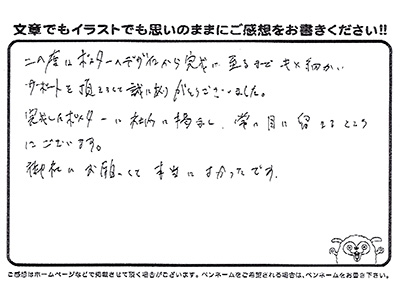 文章でもイラストでも思いのままにご感想をお書きください!!
この度はポスターのデザインから完成に至るまできめ細かい
サポートを頂きまして誠にありがとうございました。
完成したポスターは社内に掲示し、常に目に留まるところ
にございます。
御社にお願いして本当によかったです。
ご感想はホームページなどで掲載させて頂く場合がございます。ペンネームをご希望される場合は、ペンネームをお書き下さい。